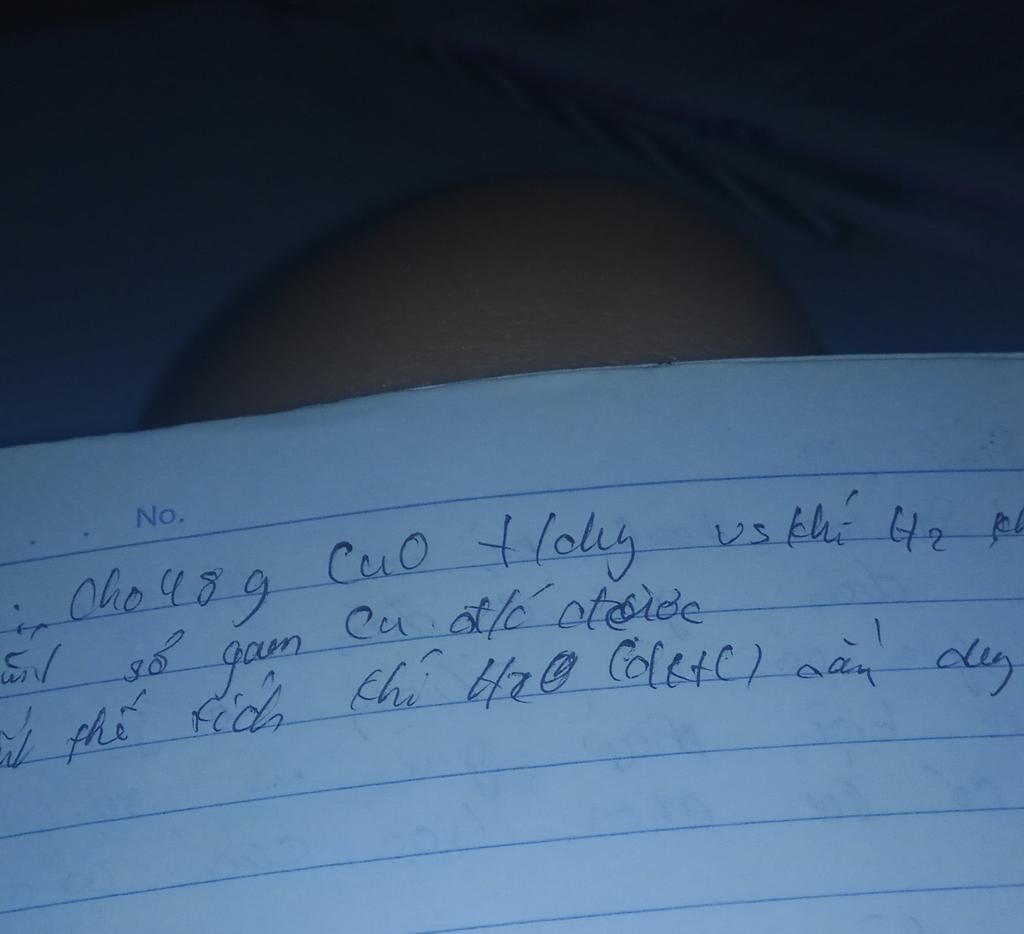 No.
Cho 48 g CuO t/dụng vs khí H2
số gam Cu đ/c được
thể tích khí H2 (đktc) cần dụng